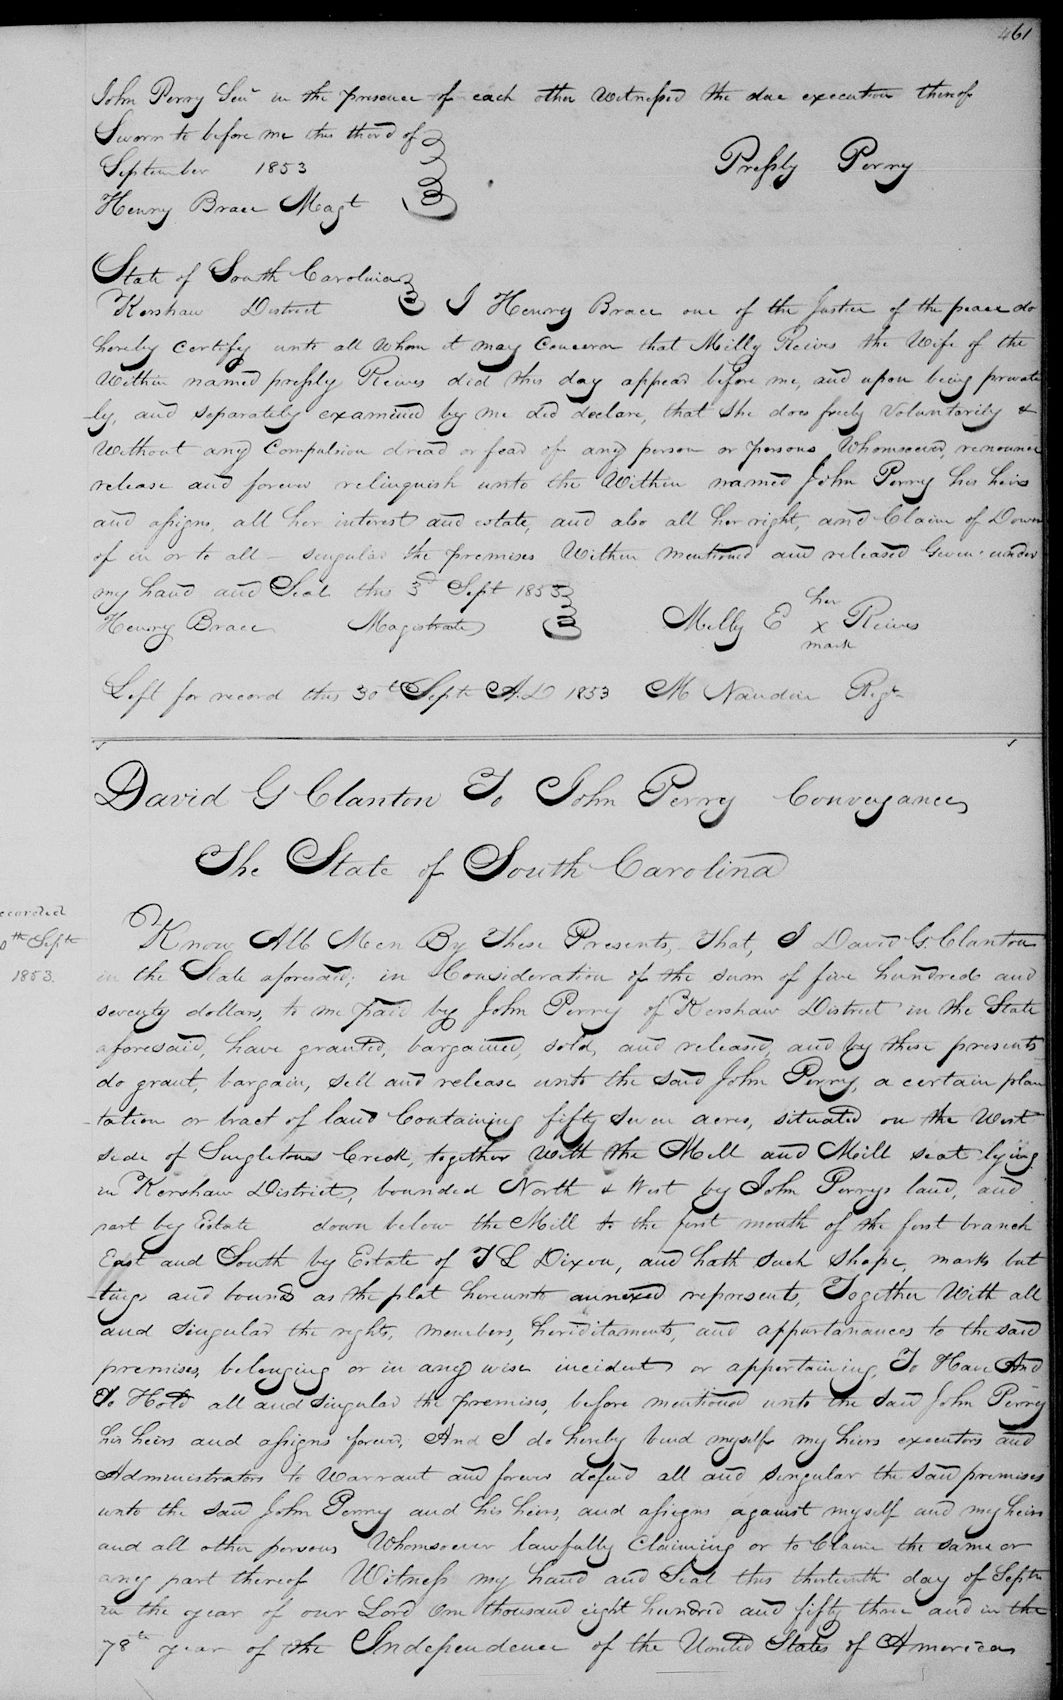 461
John Perry Senr in the presence of each other Witnessed the due execution thereof
Sworn to before me this third of
September 1853
Pressly Perry
Henry Brace Magt
State of South Carolina
Kershaw District I Henry Brace one of the Justice of the peace do
hereby certify unto all whom it may Concern that Milly Reives the Wife of the
Within named pressly Reives did this day appear before me, and upon being private
-ly, and separately examined by me did declare, that she does freely Voluntarily &
Without any Compulsion dread or fear of any person or persons Whomsoever, renounce
release and forever relinquish unto the Within named John Perry his heirs
and assigns, all her interest and estate, and also all her right, and Claim of Dower
of in or to all - singular the premises Within mentioned and released Given under
my hand and Seal this 3d Sept 1853
Henry Brace Magistrate Milly E her x mark Reives
Left for record this 30th Sept A.D 1853 M Naudin Regr
David G Clanton To John Perry Conveyance
The State of South Carolina
ecorded
0th Septr
1853
Know All Men By These Presents, That, I David G. Clanton
in the State aforesaid; in Consideration of the sum of five hundred and
seventy dollars, to me paid by John Perry of Kershaw District in the State
aforesaid, have granted, bargained, sold, and released, and by these presents
do grant, bargain, sell and release unto the said John Perry, a certain plan
-tation or tract of land Containing fifty seven acres, situated on the West
side of Singletons Creek, together With the Mill and Mill seat lying
in Kershaw District, bounded North & West by John Perrys land, and
part by Estate down below the Mill to the first mouth of the first branch
East and South by Estate of T L Dixon, and hath such shape, marks but
-tings and bounds as the plat hereunto annexed represents, Together With all
and singular the rights, members, hereditaments, and appurtanances to the said
premises, belonging or in any wise incident or appertaining, To Have And
To Hold all and singular the premises, before mentioned unto the said John Perry
his heirs and assigns forever, And I do hereby bind myself my heirs executors and
Administrators to Warrant and forever defend all and singular the said premises
unto the said John Perry and his heirs, and assigns against myself and my heirs
and all other persons Whomsoever lawfully Claiming or to Claim the same or
any part thereof Witness my hand and Seal this thirteenth day of Septr
in the year of our Lord One thousand eight hundred and fifty three and in the
78th year of the Independence of the United States of America